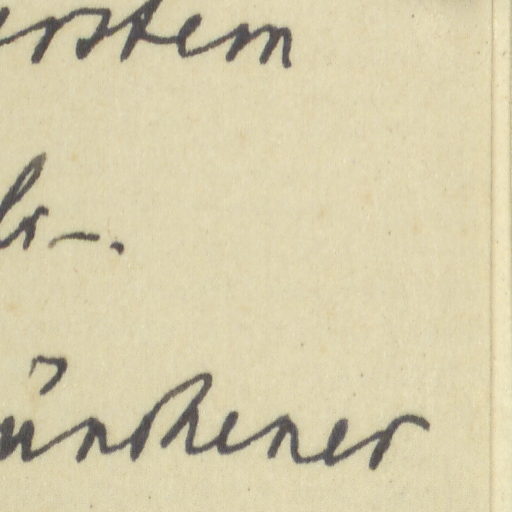 erstem
ünchener